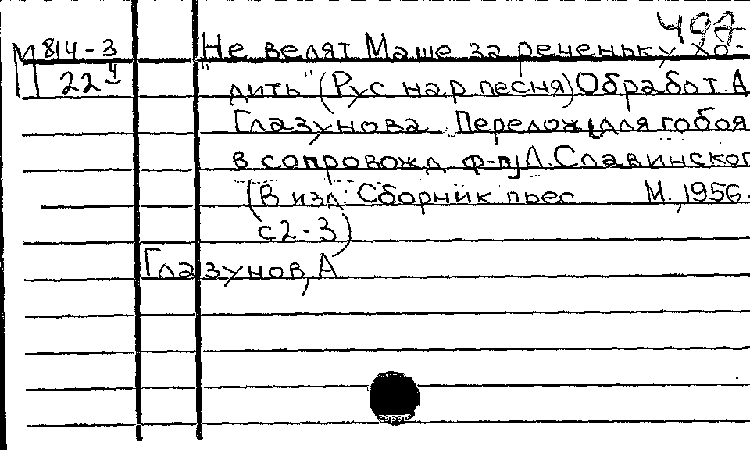 М 814-3 "Не велят Маше за реченьку хо-
П 22 4 дить" (Рус нар песня) Обработ. А
Глазунова. Перелож. для гобоя
в сопровожд ф-п Л. Славинског
(В изд: Сборник пьес М., 1956.
с 2-3)
Глазунов, А